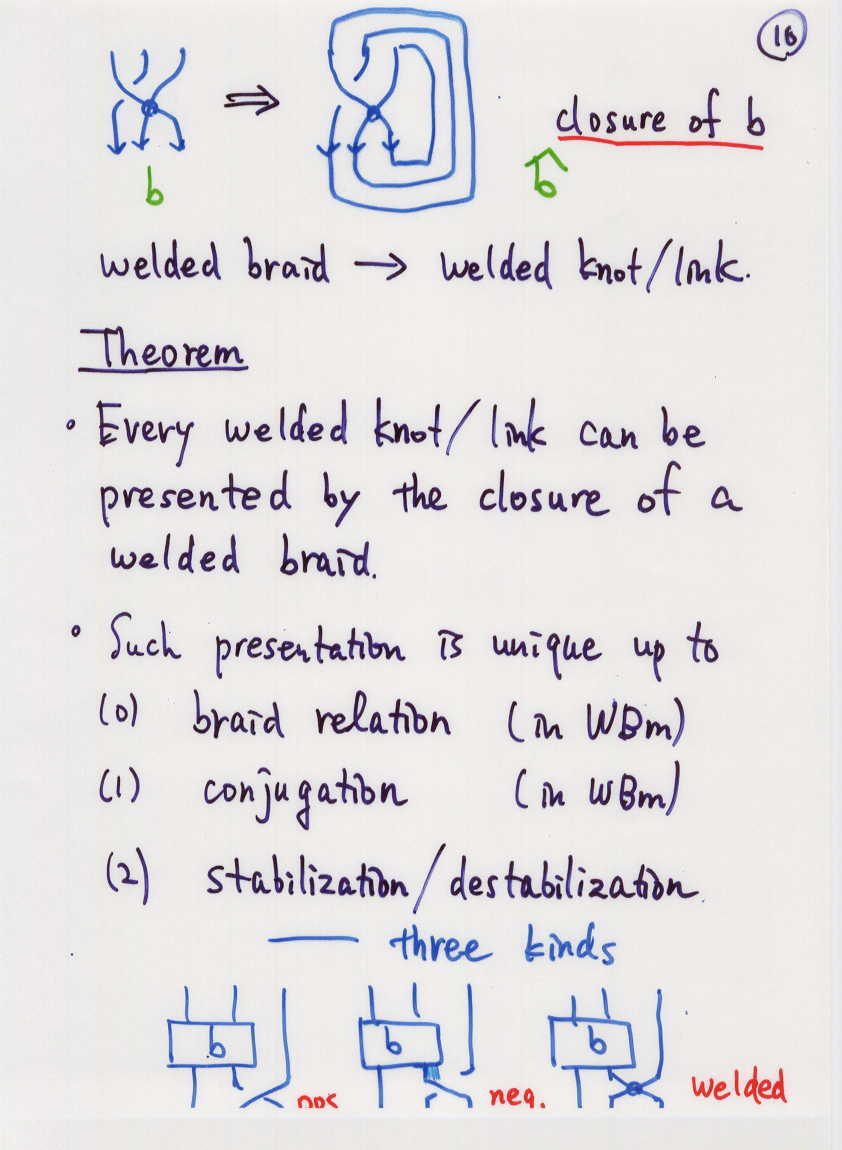 16
b
⇒
closure of b
b̂
welded braid → welded knot/link.
Theorem
• Every welded knot/link can be
presented by the closure of a
welded braid.
• Such presentation is unique up to
(0) braid relation (in WBm)
(1) conjugation (in WBm)
(2) stabilization/destabilization.
— three kinds
b b b
pos neg. welded